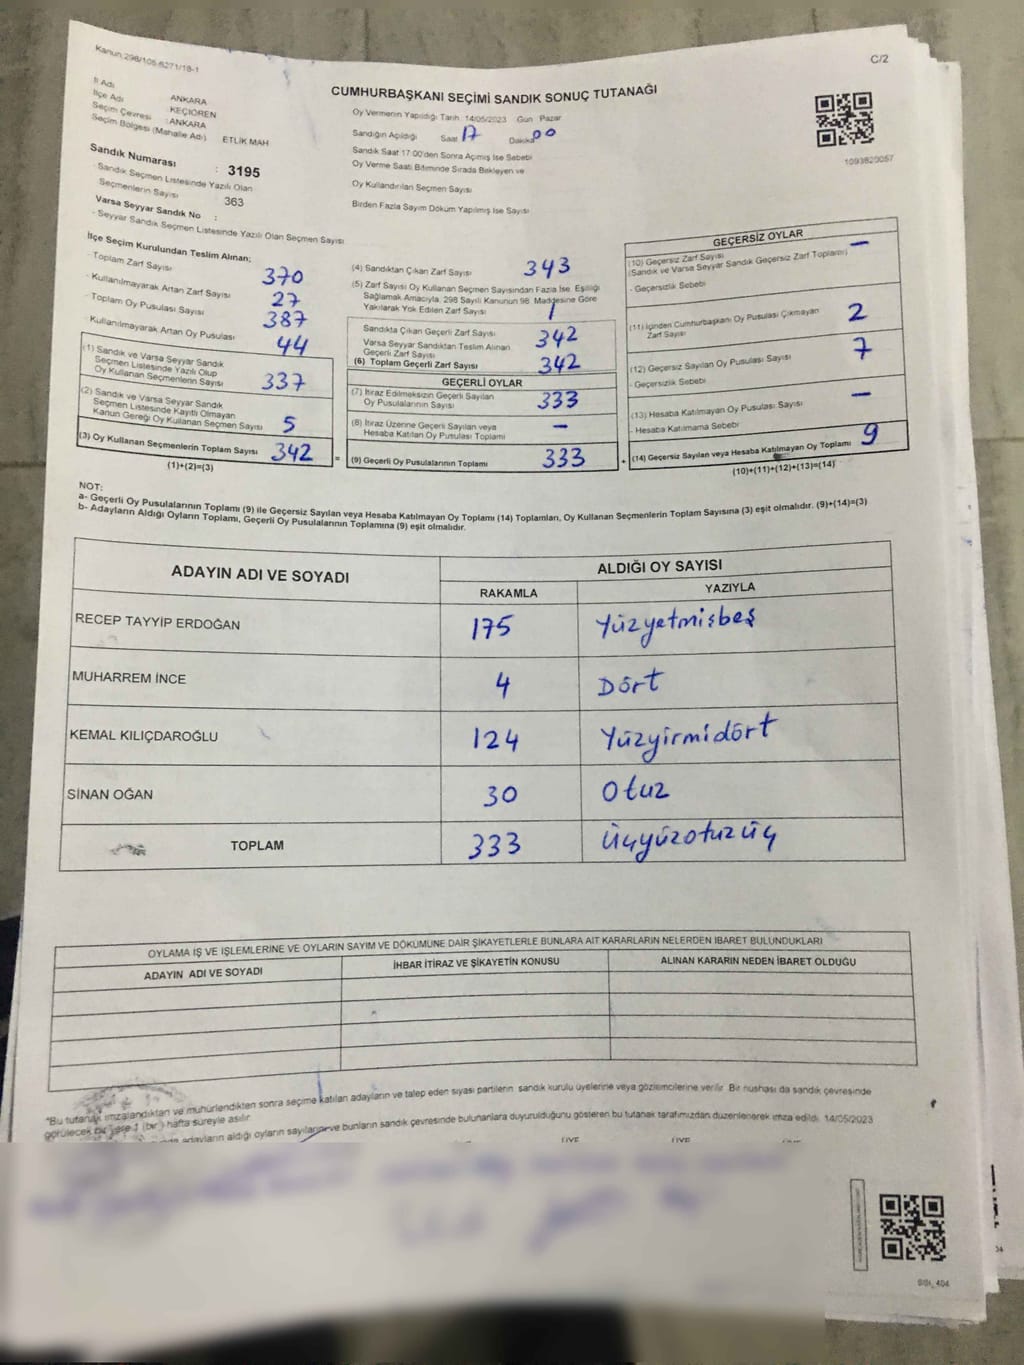 Kanun 298/105-6271/18-1
C/2
CUMHURBAŞKANI SEÇİMİ SANDIK SONUÇ TUTANAĞI
İl Adı ANKARA
İlçe Adı KEÇİÖREN
Seçim Çevresi : ANKARA
Seçim Bölgesi (Mahalle Adı) ETLİK MAH
Sandık Numarası : 3195
- Sandık Seçmen Listesinde Yazılı Olan
Seçmenlerin Sayısı 363
Varsa Seyyar Sandık No :
- Seyyar Sandık Seçmen Listesinde Yazılı Olan Seçmen Sayısı
Oy Vermenin Yapıldığı Tarih 14/05/2023 Gün Pazar
Sandığın Açıldığı Saat 17 Dakika 00
Sandık Saat 17:00'den Sonra Açılmış İse Sebebi
Oy Verme Saati Bitiminde Sırada Bekleyen ve
Oy Kullandırılan Seçmen Sayısı
Birden Fazla Sayım Döküm Yapılmış İse Sayısı
1093820057
İlçe Seçim Kurulundan Teslim Alınan;
- Toplam Zarf Sayısı 370
- Kullanılmayarak Artan Zarf Sayısı 27
- Toplam Oy Pusulası Sayısı 387
- Kullanılmayarak Artan Oy Pusulası 44
(1) Sandık ve Varsa Seyyar Sandık
Seçmen Listesinde Yazılı Olup
Oy Kullanan Seçmenlerin Sayısı 337
(2) Sandık ve Varsa Seyyar Sandık
Seçmen Listesinde Kayıtlı Olmayan
Kanun Gereği Oy Kullanan Seçmen Sayısı 5
(3) Oy Kullanan Seçmenlerin Toplam Sayısı 342 =
(1)+(2)=(3)
(4) Sandıktan Çıkan Zarf Sayısı 343
(5) Zarf Sayısı Oy Kullanan Seçmen Sayısından Fazla İse, Eşitliği
Sağlamak Amacıyla, 298 Sayılı Kanunun 98. Maddesine Göre
Yakılarak Yok Edilen Zarf Sayısı 1
Sandıkta Çıkan Geçerli Zarf Sayısı 342
Varsa Seyyar Sandıktan Teslim Alınan
Geçerli Zarf Sayısı
(6) Toplam Geçerli Zarf Sayısı 342
GEÇERLİ OYLAR
(7) İtiraz Edilmeksizin Geçerli Sayılan
Oy Pusulalarının Sayısı 333
(8) İtiraz Üzerine Geçerli Sayılan veya
Hesaba Katılan Oy Pusulası Toplamı –
(9) Geçerli Oy Pusulalarının Toplamı 333 +
GEÇERSİZ OYLAR
(10) Geçersiz Zarf Sayısı –
(Sandık ve Varsa Seyyar Sandık Geçersiz Zarf Toplamı)
- Geçersizlik Sebebi
(11) İçinden Cumhurbaşkanı Oy Pusulası Çıkmayan
Zarf Sayısı 2
(12) Geçersiz Sayılan Oy Pusulası Sayısı 7
- Geçersizlik Sebebi
(13) Hesaba Katılmayan Oy Pusulası Sayısı –
- Hesaba Katılmama Sebebi
(14) Geçersiz Sayılan veya Hesaba Katılmayan Oy Toplamı 9
(10)+(11)+(12)+(13)=(14)
NOT:
a- Geçerli Oy Pusulalarının Toplamı (9) ile Geçersiz Sayılan veya Hesaba Katılmayan Oy Toplamı (14) Toplamları, Oy Kullanan Seçmenlerin Toplam Sayısına (3) eşit olmalıdır. (9)+(14)=(3)
b- Adayların Aldığı Oyların Toplamı, Geçerli Oy Pusulalarının Toplamına (9) eşit olmalıdır.
ADAYIN ADI VE SOYADI ALDIĞI OY SAYISI
RAKAMLA YAZIYLA
RECEP TAYYİP ERDOĞAN 175 Yüzyetmişbeş
MUHARREM İNCE 4 Dört
KEMAL KILIÇDAROĞLU 124 Yüzyirmidört
SİNAN OĞAN 30 Otuz
TOPLAM 333 Üçyüzotuzüç
OYLAMA İŞ VE İŞLEMLERİNE VE OYLARIN SAYIM VE DÖKÜMÜNE DAİR ŞİKAYETLERLE BUNLARA AİT KARARLARIN NELERDEN İBARET BULUNDUKLARI
ADAYIN ADI VE SOYADI İHBAR İTİRAZ VE ŞİKAYETİN KONUSU ALINAN KARARIN NEDEN İBARET OLDUĞU
"Bu tutanak imzalandıktan ve mühürlendikten sonra seçime katılan adayların ve talep eden siyasi partilerin sandık kurulu üyelerine veya gözlemcilerine verilir. Bir nüshası da sandık çevresinde
görülecek bir yere 1 (bir) hafta süreyle asılır.
adayların aldığı oyların sayılarını ve bunların sandık çevresinde bulunanlara duyurulduğunu gösteren bu tutanak tarafımızdan düzenlenerek imza edildi. 14/05/2023
ÜYE ÜYE